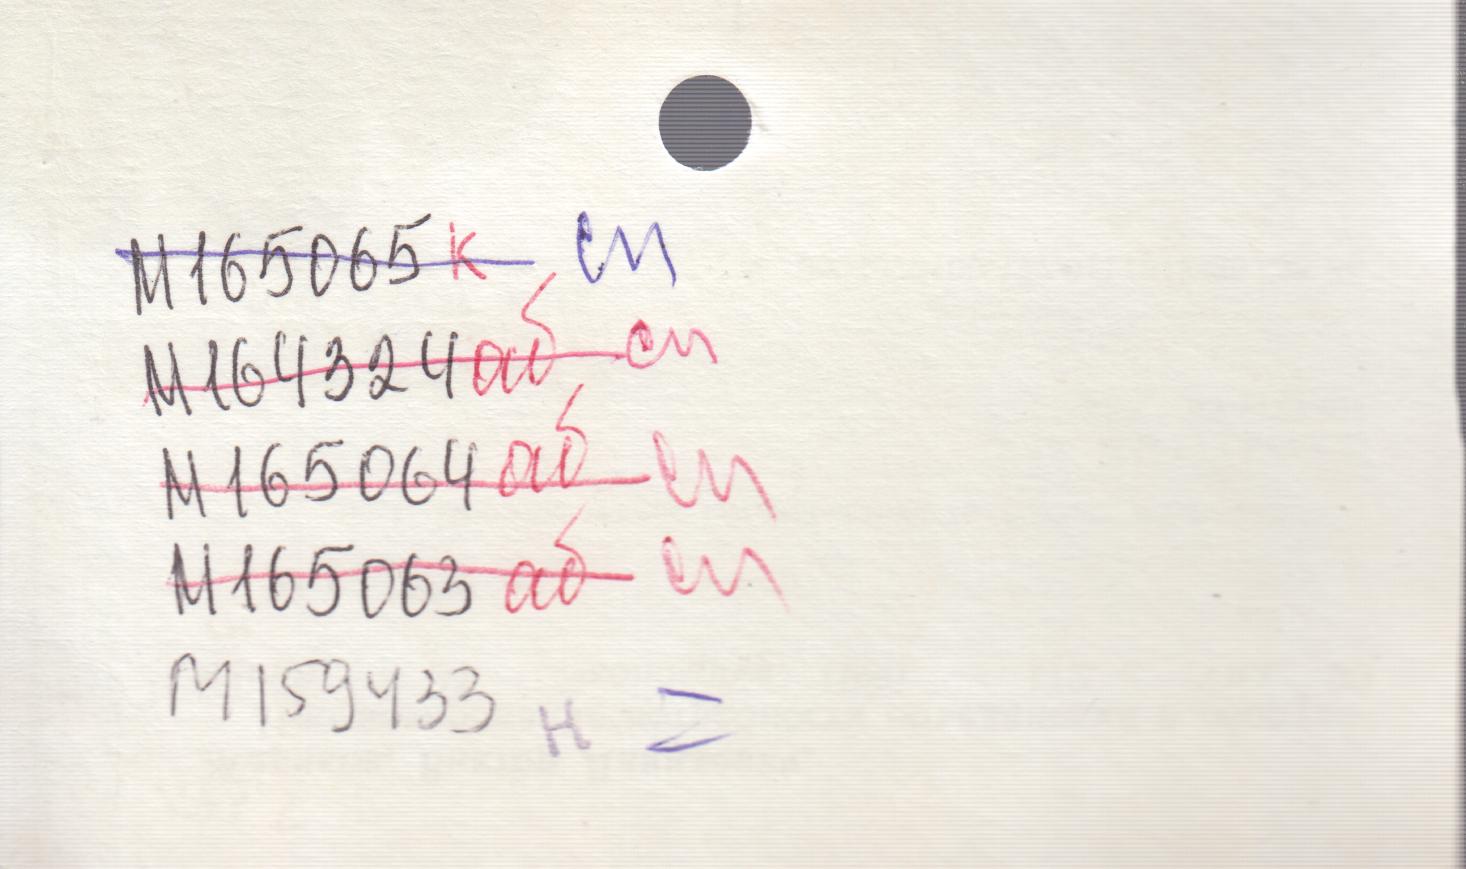 М165065к сп
М164324аб сп
М165064 аб сп
М165063 аб сп
М159433 н